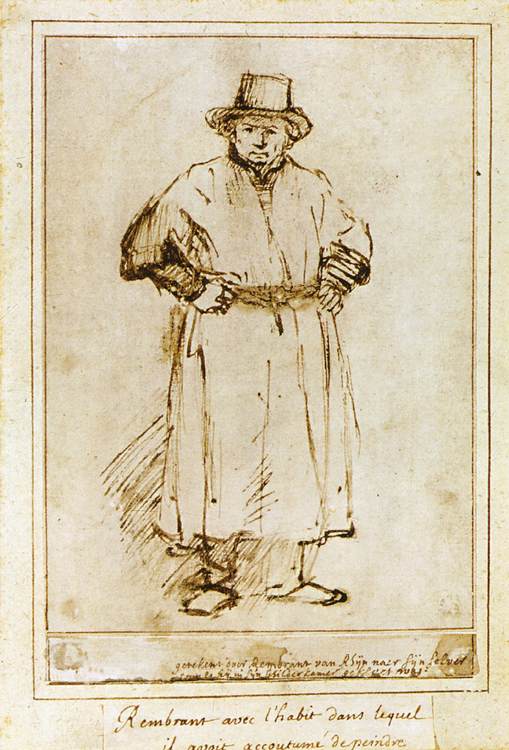 getekent door Rembrant van Rhijn naer sijn selver
sijn schilderkamer gekleet was
Rembrant avec l'habit dans lequel
il avoit accoutumé de peindre